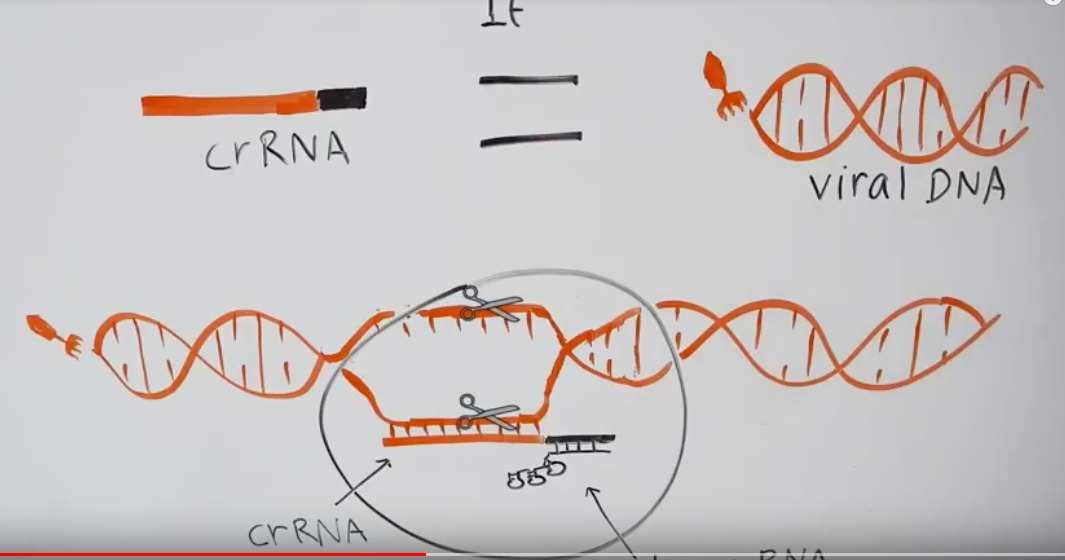 If
crRNA
viral DNA
crRNA
RNA